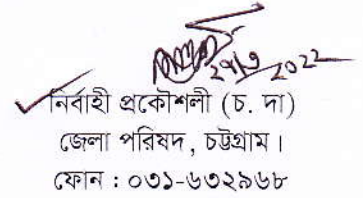 নির্বাহী প্রকৌশলী (চ. দা)
জেলা পরিষদ, চট্টগ্রাম।
ফোন : ০৩১-৬৩২৯৬৮